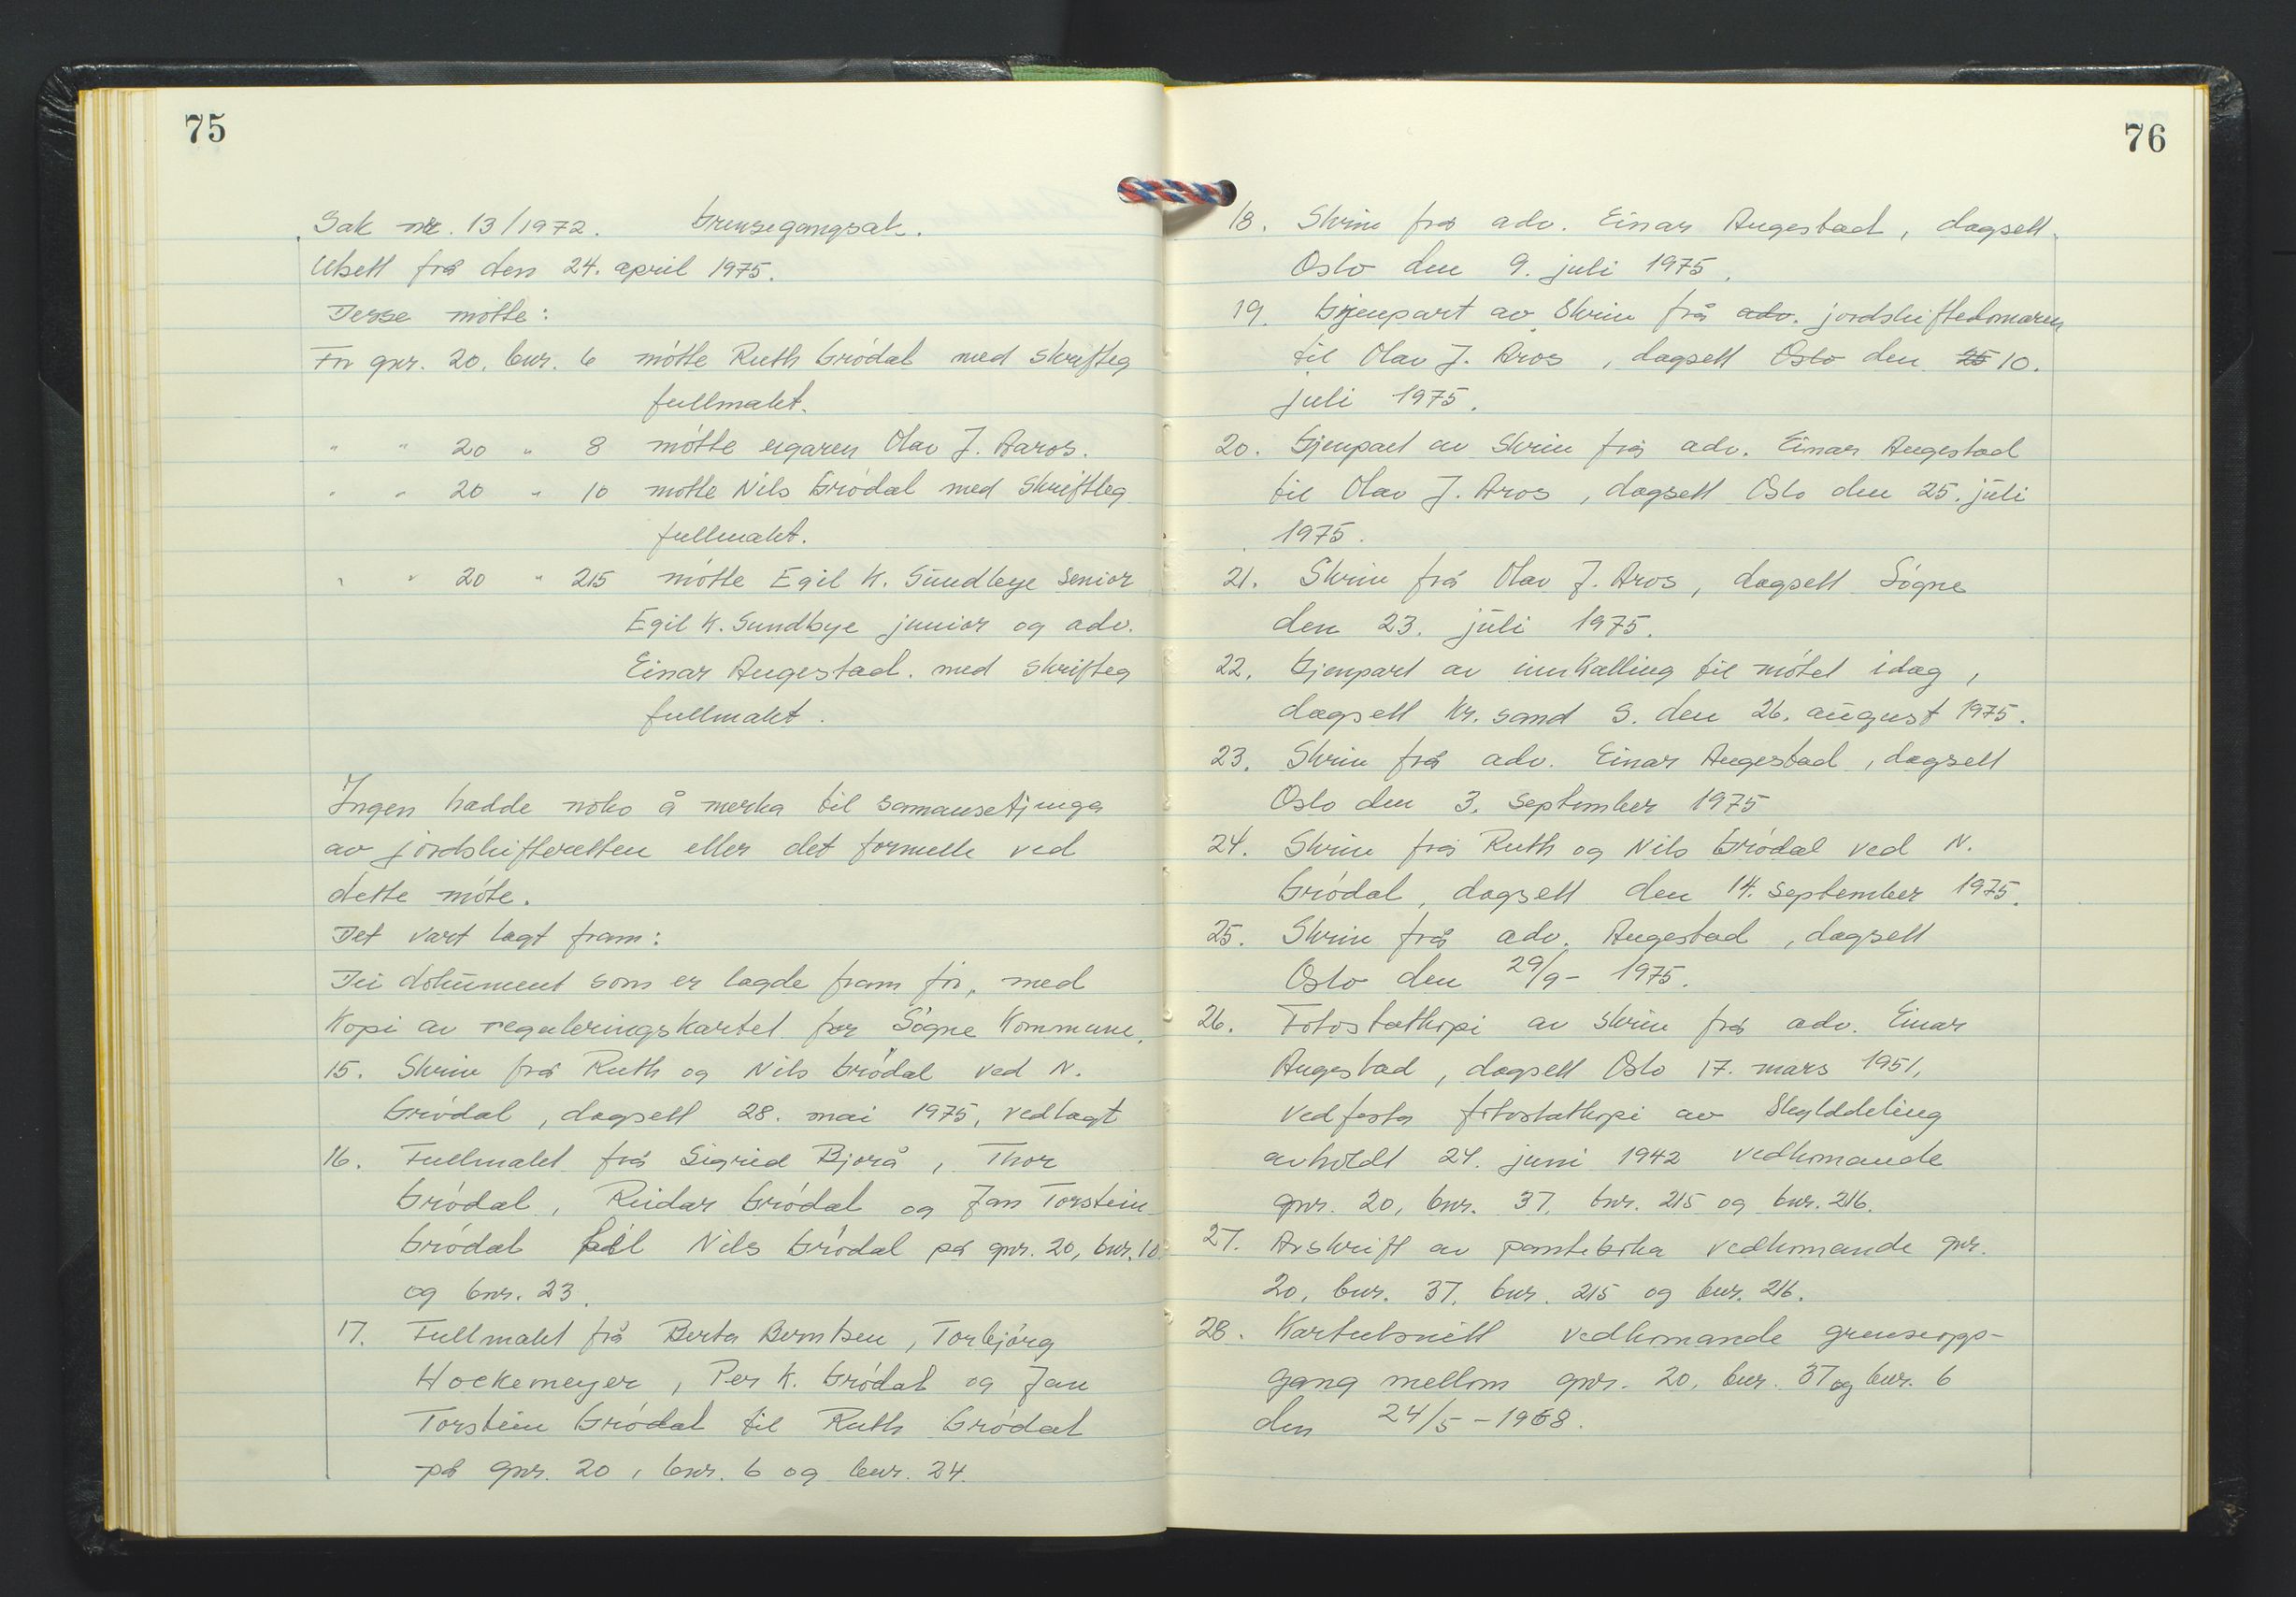 75
Sak nr. 13/1972. Grensegangsak.
Utsett frå den 24. april 1975.
Desse møtte:
For gnr. 20, bnr. 6 møtte Ruth Grødal med skrifteg
fullmakt.
" " 20 " 8 møtte eigaren Olav J. Aaros.
" " 20 " 10 møtte Nils Grødal med skriftleg
fullmakt.
" " 20 " 215 møtte Egil K. Sundbye senior
Egil K. Sundbye junior og adv.
Einar Augestad. med skrifteg
fullmakt.
Ingen hadde noko å merka til samansetjinga
av jordskifteretten eller det formelle ved
dette møte.
Det vart lagt fram:
Dei dokument som er lagde fram før, med
Kopi av reguleringskartet for Søgne Kommune.
15. Skriv frå Ruth og Nils Grødal ved N.
Grødal, dagsett 28. mai 1975, vedlagt
16. Fullmakt frå Sigrid Bjorå, Thor
Grødal, Reidar Grødal og Jan Torstein
Grødal til Nils Grødal på gnr. 20, bnr. 10
og bnr. 23.
17. Fullmakt frå Berta Berntsen, Torbjørg
Hockemeyer, Per K. Grødal og Jan
Torstein Grødal til Ruth Grødal
på gnr. 20, bnr. 6 og bnr. 24.
76
18. Skriv frå adv. Einar Augestad, dagsett
Oslo den 9. juli 1975.
19. Gjenpart av skriv frå adv. jordskiftedomaren
til Olav J. Aros, dagsett Oslo den 25 10.
juli 1975.
20. Gjenpart av skriv frå adv. Einar Augestad
til Olav J. Aros, dagsett Oslo den 25. juli
1975.
21. Skriv frå Olav J. Aros, dagsett Søgne
den 23. juli 1975.
22. Gjenpart av innkalling til møtet idag,
dagsett Kr. sand S. den 26. august 1975.
23. Skriv frå adv. Einar Augestad, dagsett
Oslo den 3. september 1975
24. Skriv frå Ruth og Nils Grødal ved N.
Grødal, dagsett den 14. september 1975.
25. Skriv frå adv. Augestad, dagsett
Oslo den 29/9- 1975.
26. Fotostatkopi av skriv frå adv. Einar
Augestad, dagsett Oslo 17. mars 1951,
vedfesta fotostatkopi av Skylddeling
avholdt 24. juni 1942 vedkomande
gnr. 20, bnr. 37, bnr. 215 og bnr. 216.
27. Avskrift av panteboka vedkomande gnr.
20, bnr. 37, bnr. 215 og bnr. 216.
28. Kartutsnitt vedkomande grenseopp-
gang mellom gnr. 20, bnr. 37 og bnr. 6
den 24/5 - 1968.